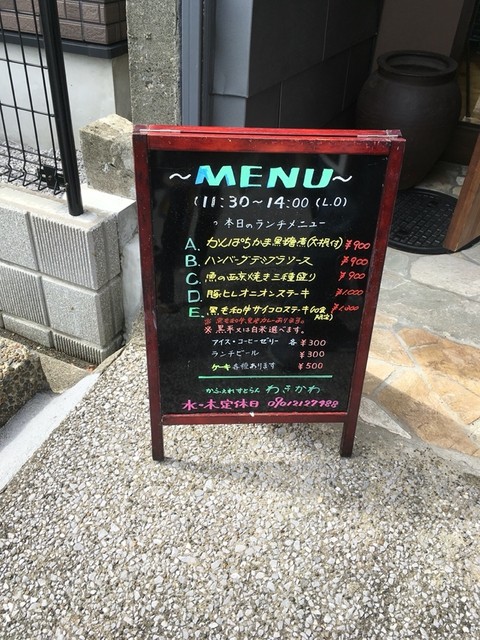 ~MENU~
(11:30~14:00 (L.O)
本日のランチメニュー
A. かんぱちかま黒糖煮(大根付) ¥900
B. ハンバーグデミグラソース ¥900
C. 魚の西京焼き三種盛り ¥900
D. 豚ヒレオニオンステーキ ¥1000
E. 黒毛和牛サイコロステーキ ¥1200
※ 黒米又は白米選べます。
アイス・コーヒーゼリー 各 ¥300
ランチビール ¥300
ケーキ各種あります ¥500
かふぇれすとらん わきかわ
水・木定休日 09012127988